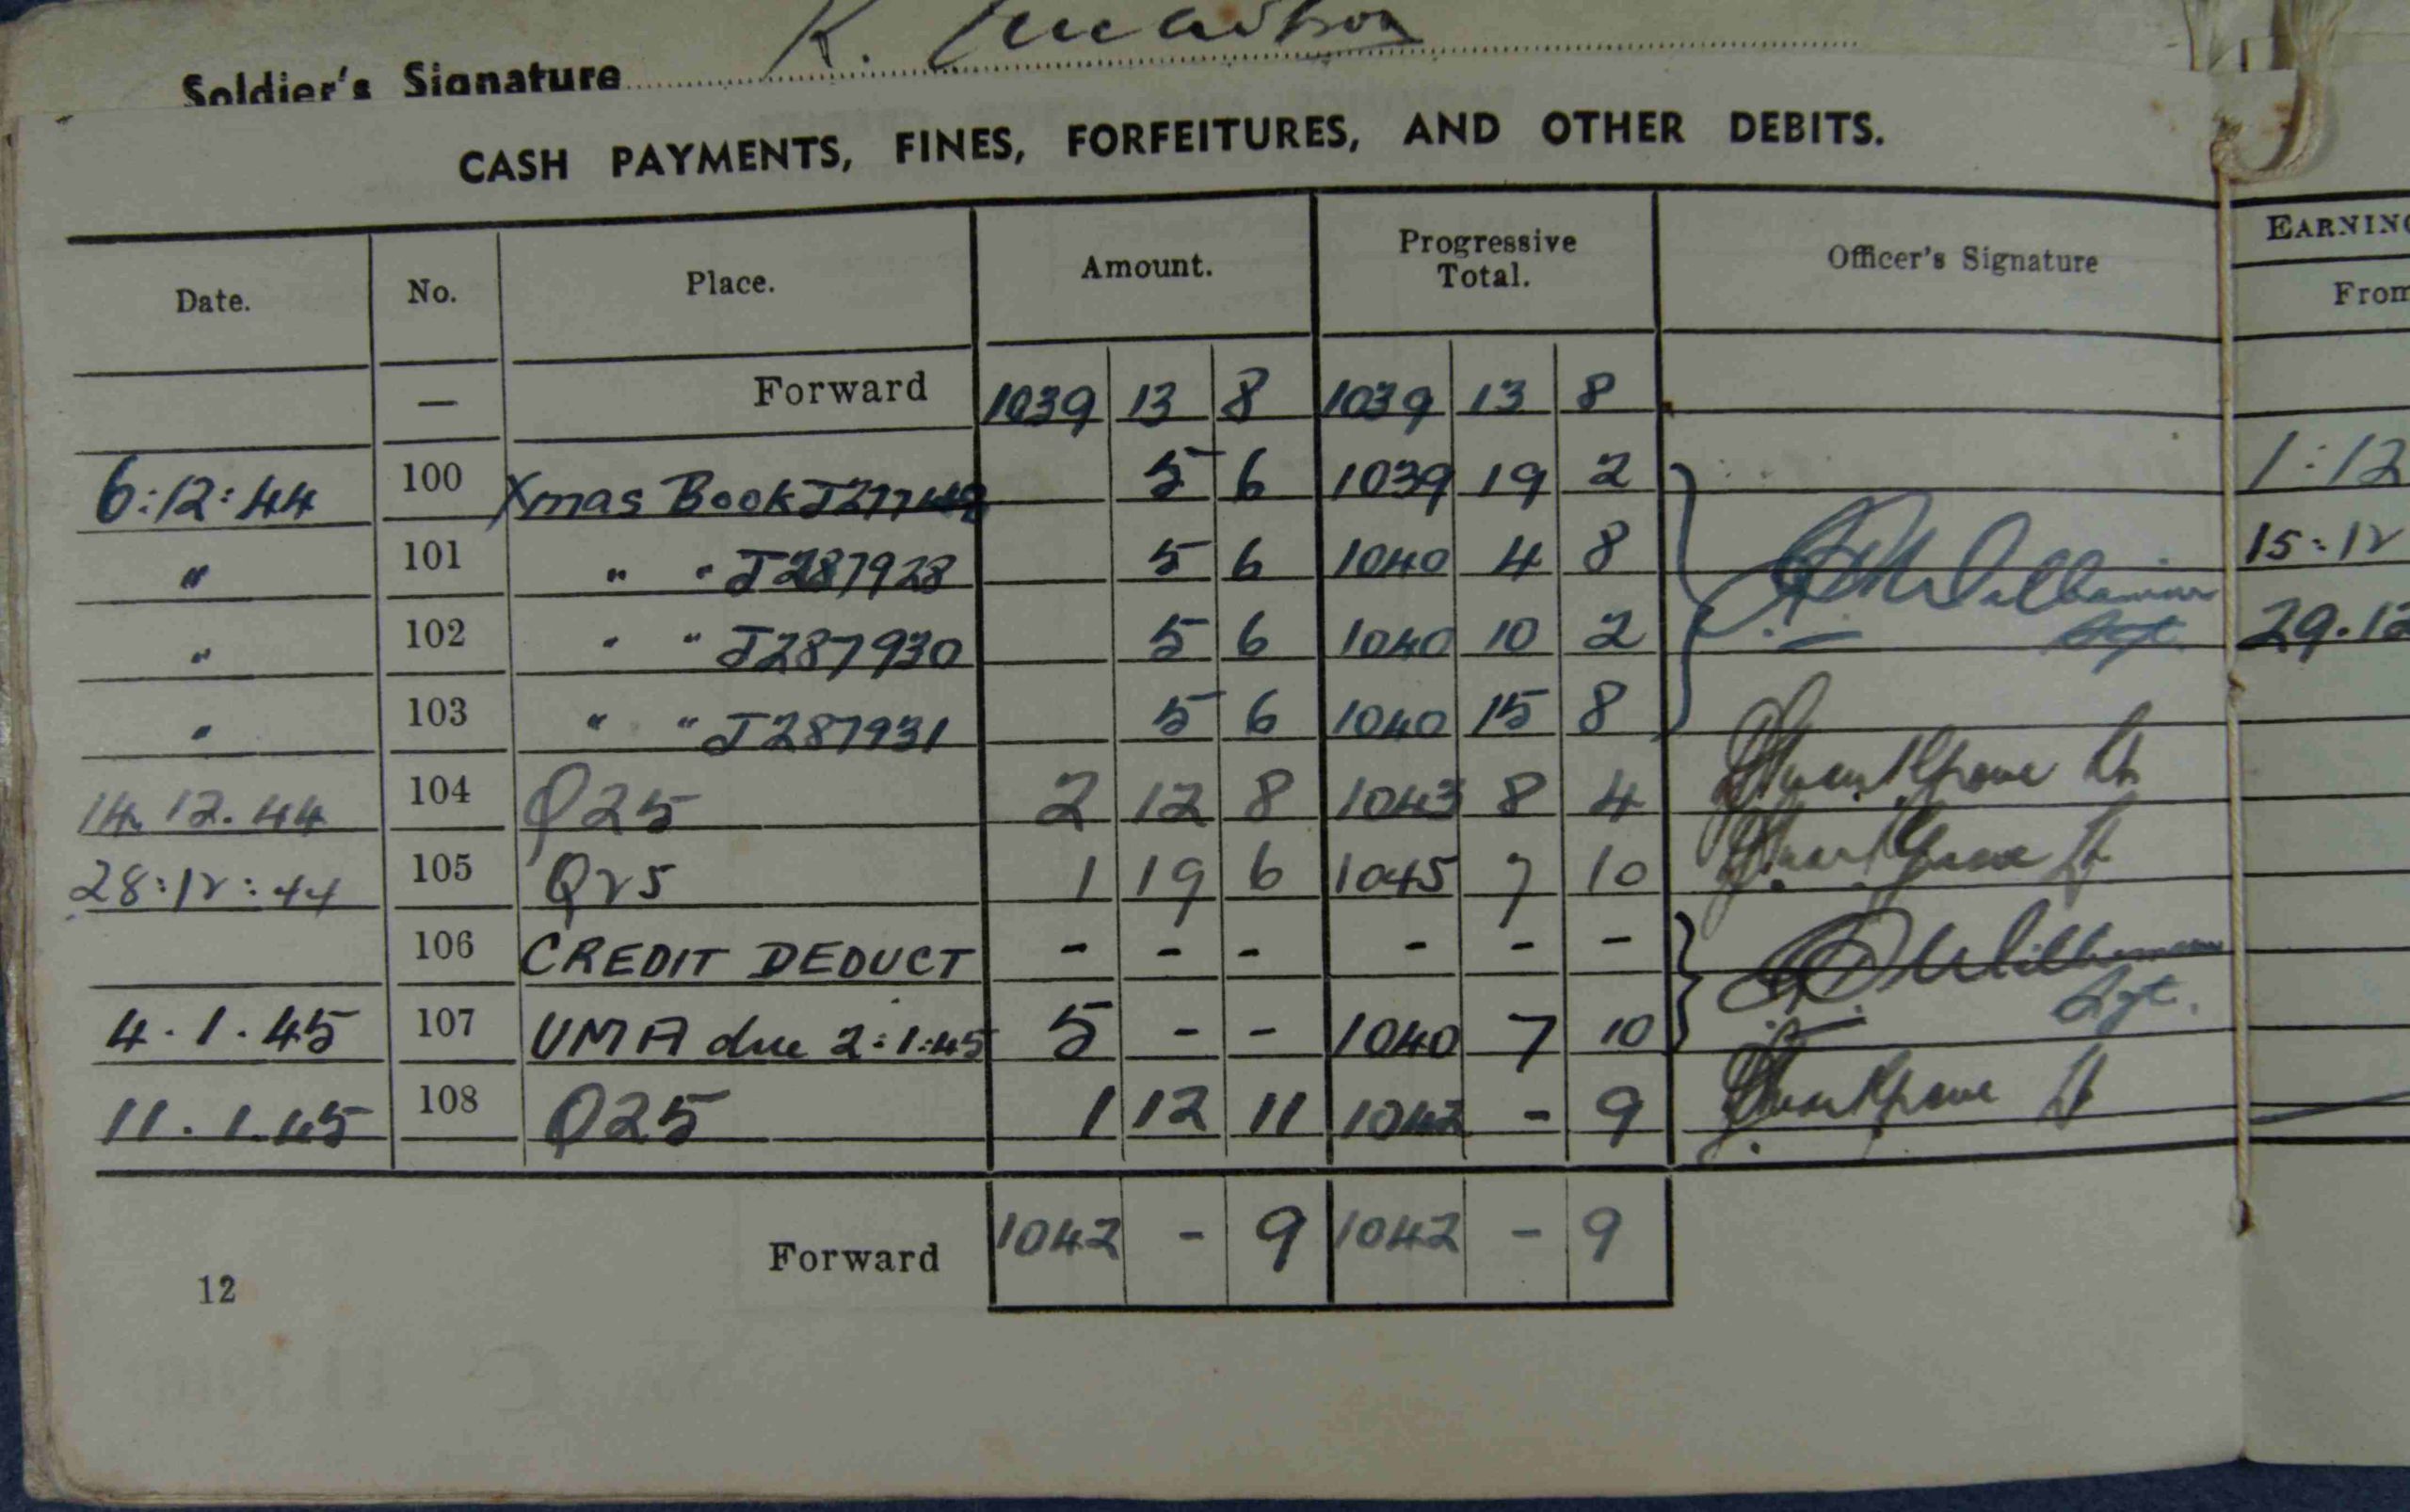 Soldier's Signature K.
CASH PAYMENTS, FINES, FORFEITURES, AND OTHER DEBITS.
Date. No. Place. Amount. Progressive Total. Officer's Signature
— Forward 1039 13 8 1039 13 8
6:12:44 100 Xmas Book 5 6 1039 19 2
" 101 " " J287928 5 6 1040 4 8
" 102 " " J287930 5 6 1040 10 2
" 103 " " J287931 5 6 1040 15 8
Sgt
14.12.44 104 Q25 2 12 8 1043 8 4 Lt
28:12:44 105 Q25 1 19 6 1045 7 10 Lt
106 CREDIT DEDUCT - - - - - -
4.1.45 107 UMA due 2:1:45 5 - - 1040 7 10 Sgt.
11.1.45 108 Q25 1 12 11 1042 - 9 Lt
Forward 1042 - 9 1042 - 9
12
EARNING
From
1:12
15:12
29.12